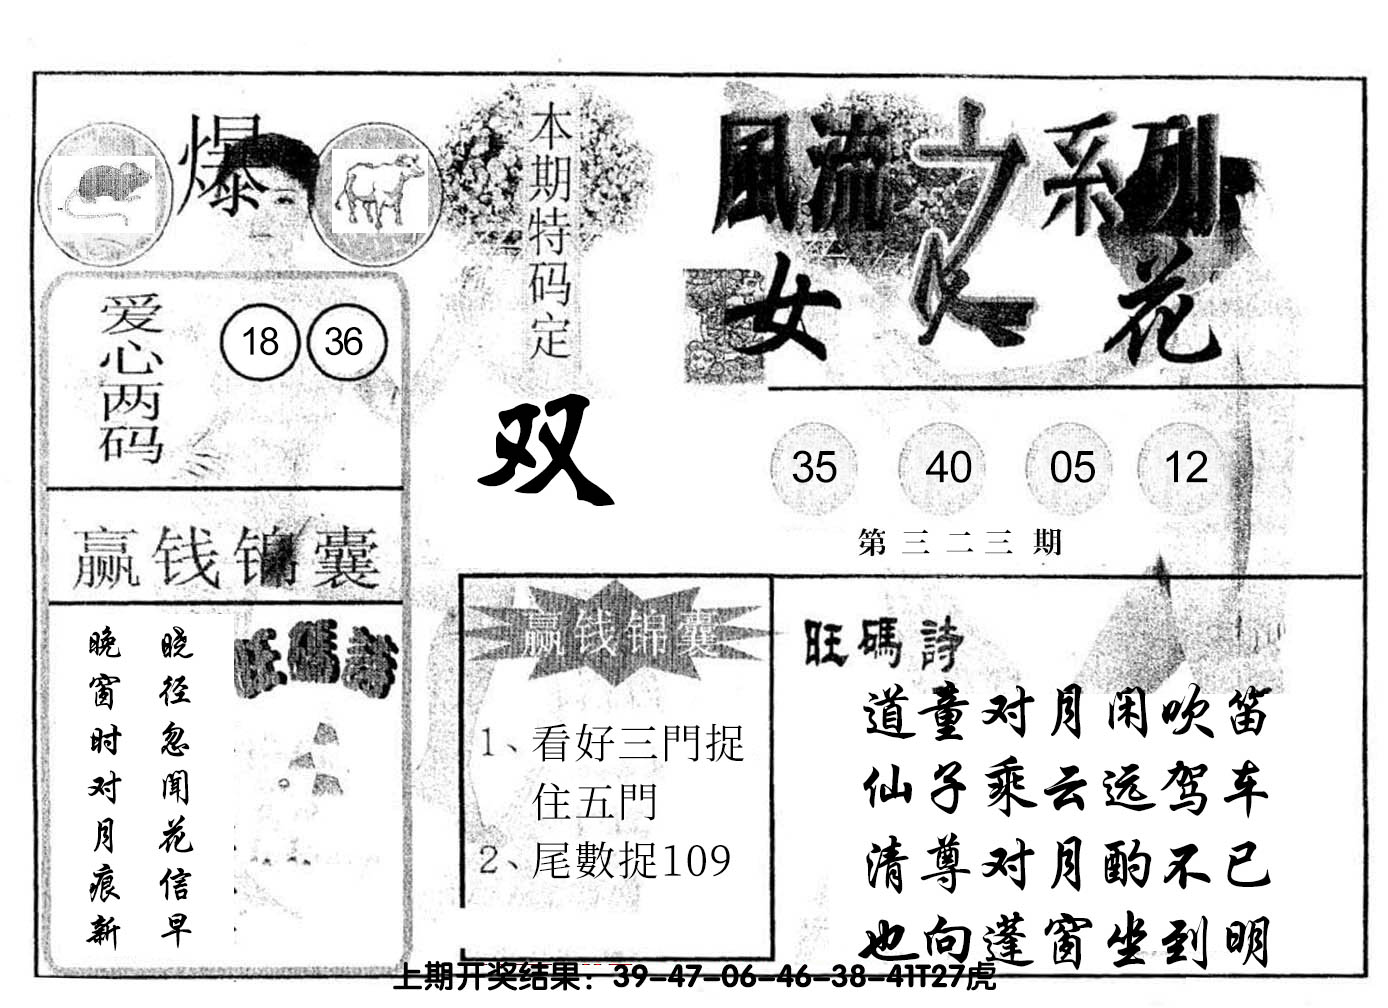 爆
本期特码定
双
風流之系列
女人花
爱心两码
18 36
35 40 05 12
第三二三期
赢钱锦囊
旺碼詩
晓径忽闻花信早
晚窗时对月痕新
赢钱锦囊
1、看好三門捉
住五門
2、尾數捉109
旺碼詩
道童对月闲吹笛
仙子乘云远驾车
清尊对月酌不已
也向蓬窗坐到明
上期开奖结果：39-47-06-46-38-41T27虎